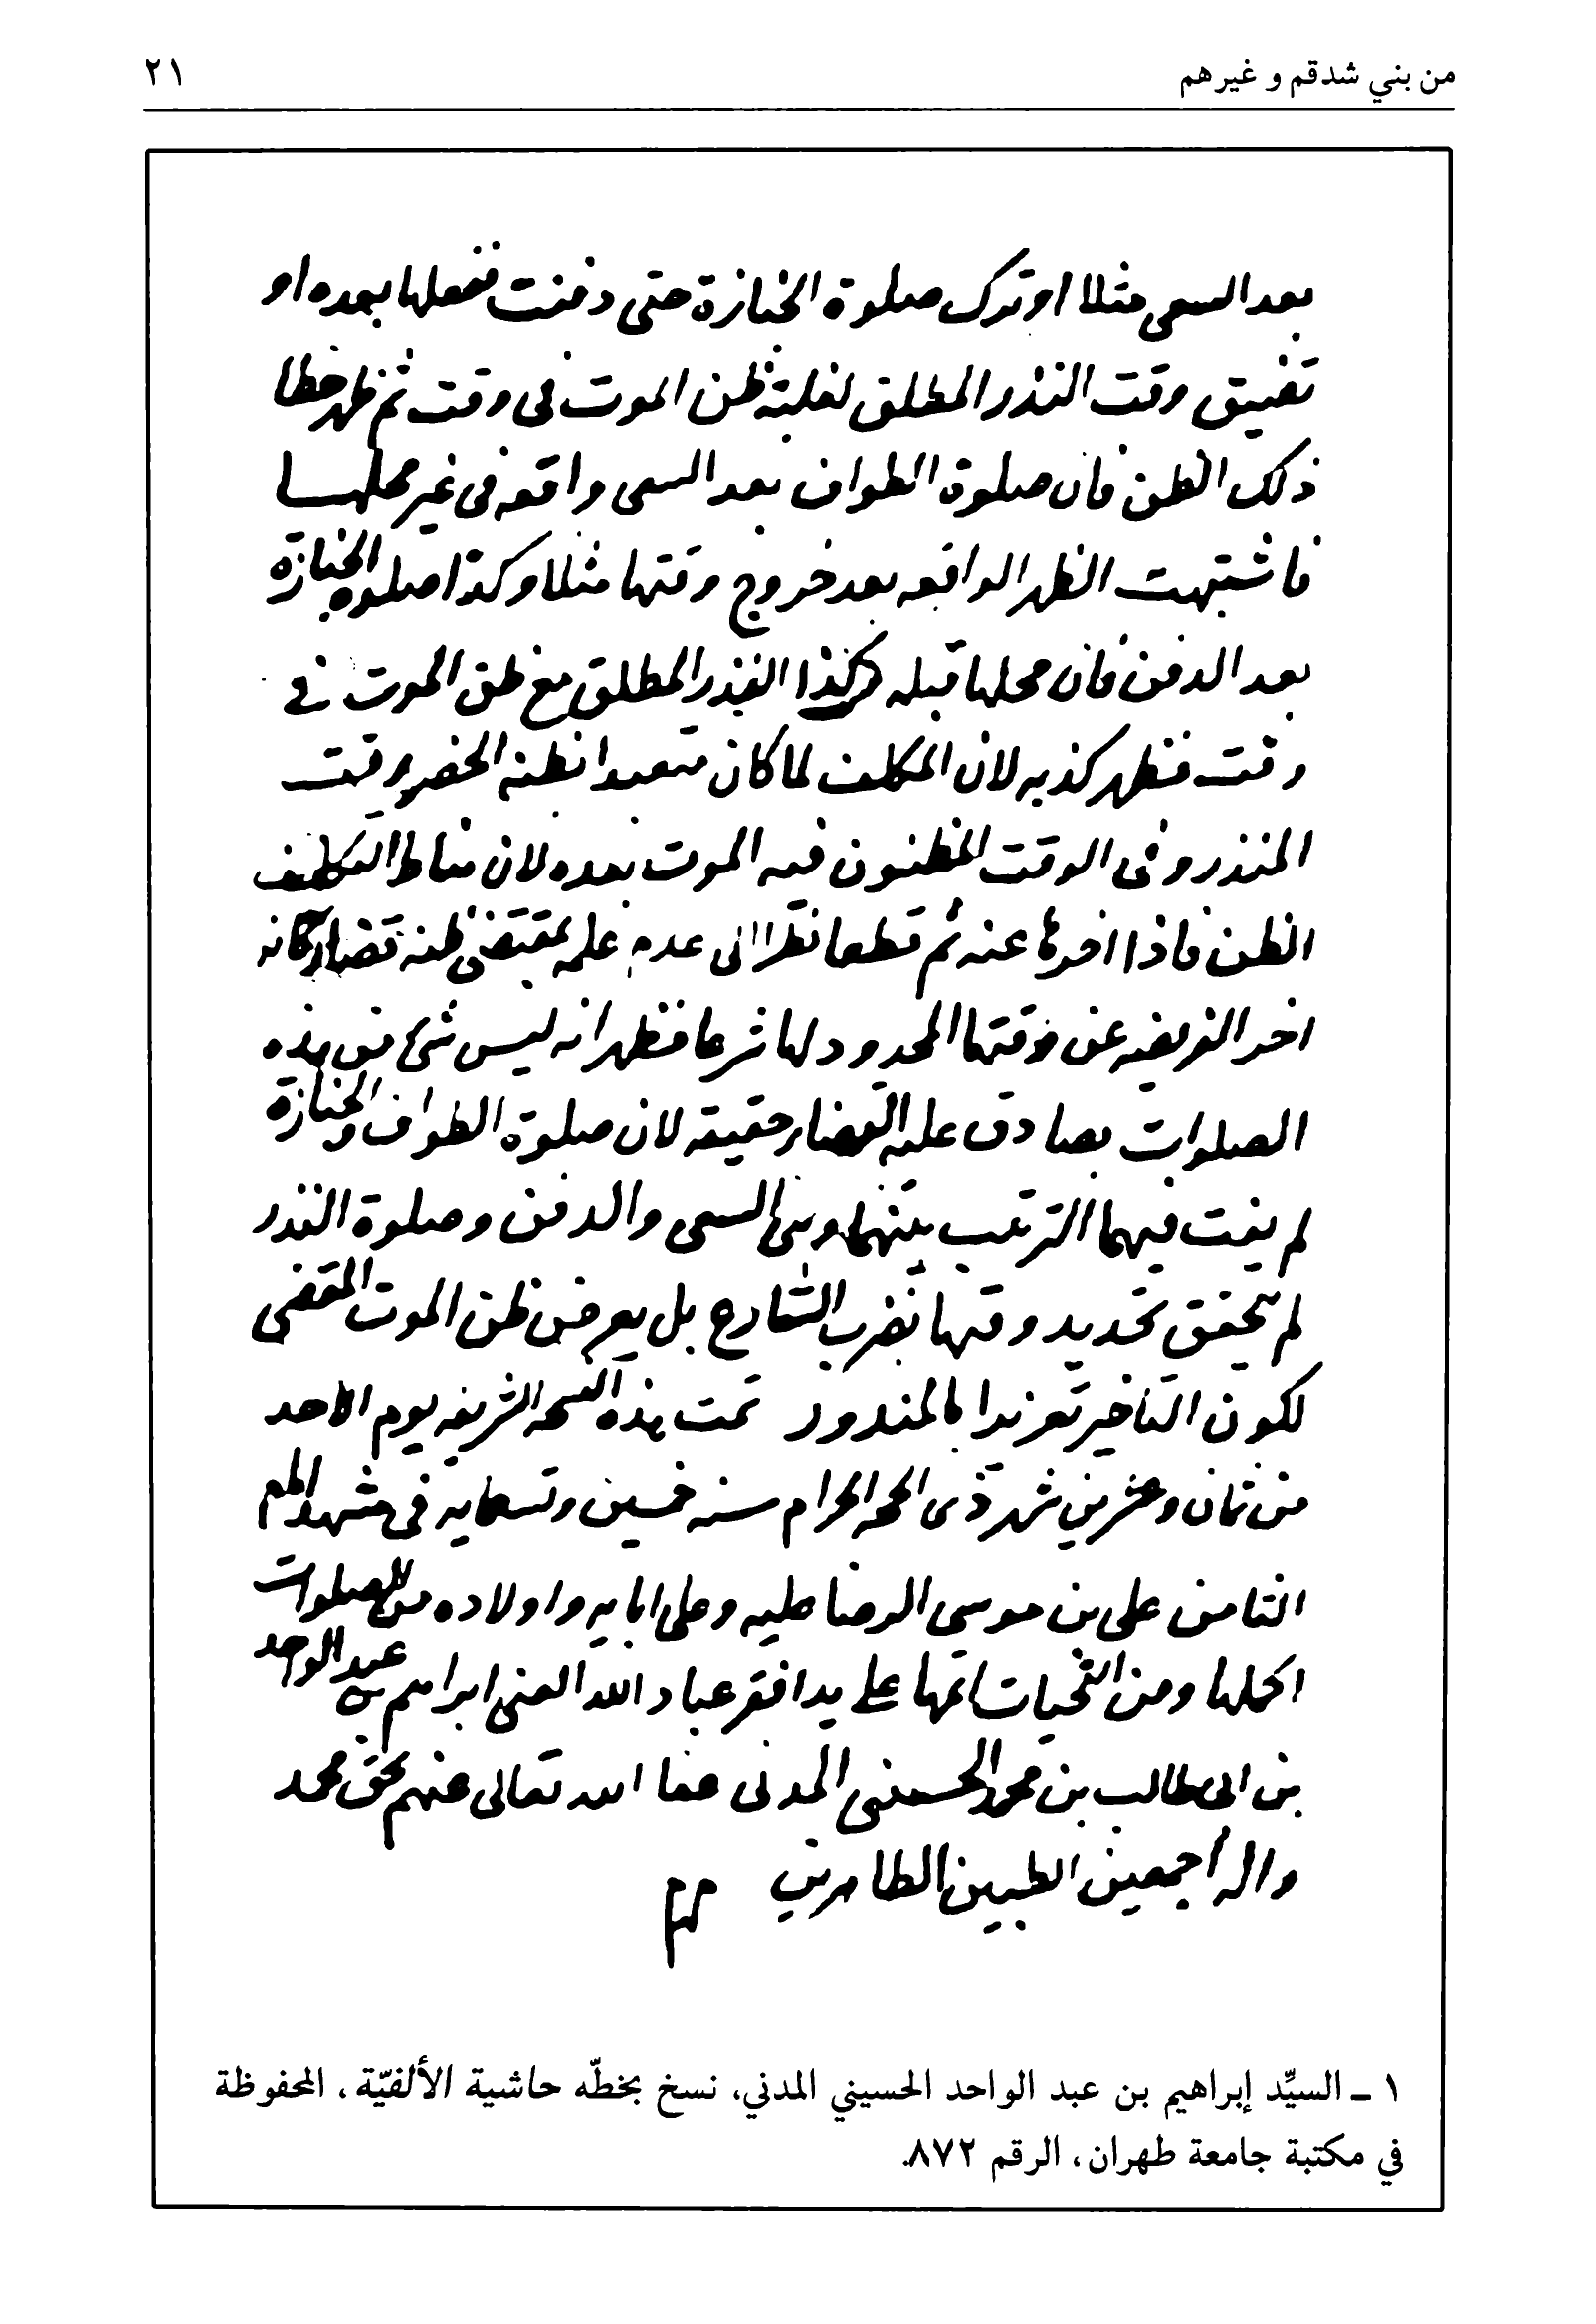 من بني شدقم و غيرهم ٢١
بعد السعى مثلا او ترك صلوة الجنازة حتى دفنت ففعلها بعده او
تضيق وقت النذر المطلق لغلبة ظن الموت فى وقت ثم ظهر خطا
ذلك الظن فان صلوة الطواف بعد السعى واقعه فى غير محلها
فاشبهت الظهر الواقعه بعد خروج وقتها مثلا وكذا صلوة الجنازة
بعد الدفن فان محلها قبله وكذا النذر المطلق مع ظن الموت فى
وقت فظهر كذبه لان المكلف لما كان متعبدا بظنه انحصر وقت
المنذر وفى الوقت المظنون فيه الموت بعده لان مناط التكليف
الظن فاذا اخرها عنه ثم قطعها نظرا الى عدم علمه بمقتضى ظنه كانه
اخر الفريضه عن وقتها المحدود لها شرعا فظهر انه ليس شئ من هذه
الصلوات بصادق عليه القضاء حقيقه لان صلوة الطواف والجنازة
لم يفت فيهما الترتيب بينهما وبين السعى والدفن وصلوة النذر
لم يتحقق تحديد وقتها الشارع بل بعرض ظن الموت المقتضى
لكون التاخير بالمنذور تمت هذه النسخه الشريفه يوم الاحد
من ثمان وعشرين شهر ذى الحجه الحرام سنه خمسين وتسعمايه فى مشهد
الثامن على بن موسى الرضا عليه وعلى ابايه واولاده من الصلوات
اكملها ومن التحيات اتمها على يد افقر عباد الله الغنى ابراهيم بن عبد الواحد
بن ابى طالب بن محمد الحسينى المدنى عفا الله تعالى عنهم بحق محمد
واله اجمعين الطيبين الطاهرين
١ ـ السيِّد إبراهيم بن عبد الواحد الحسيني المدني، نسخ بخطّه حاشية الألفيّة، المحفوظة
في مكتبة جامعة طهران، الرقم ٨٧٢.